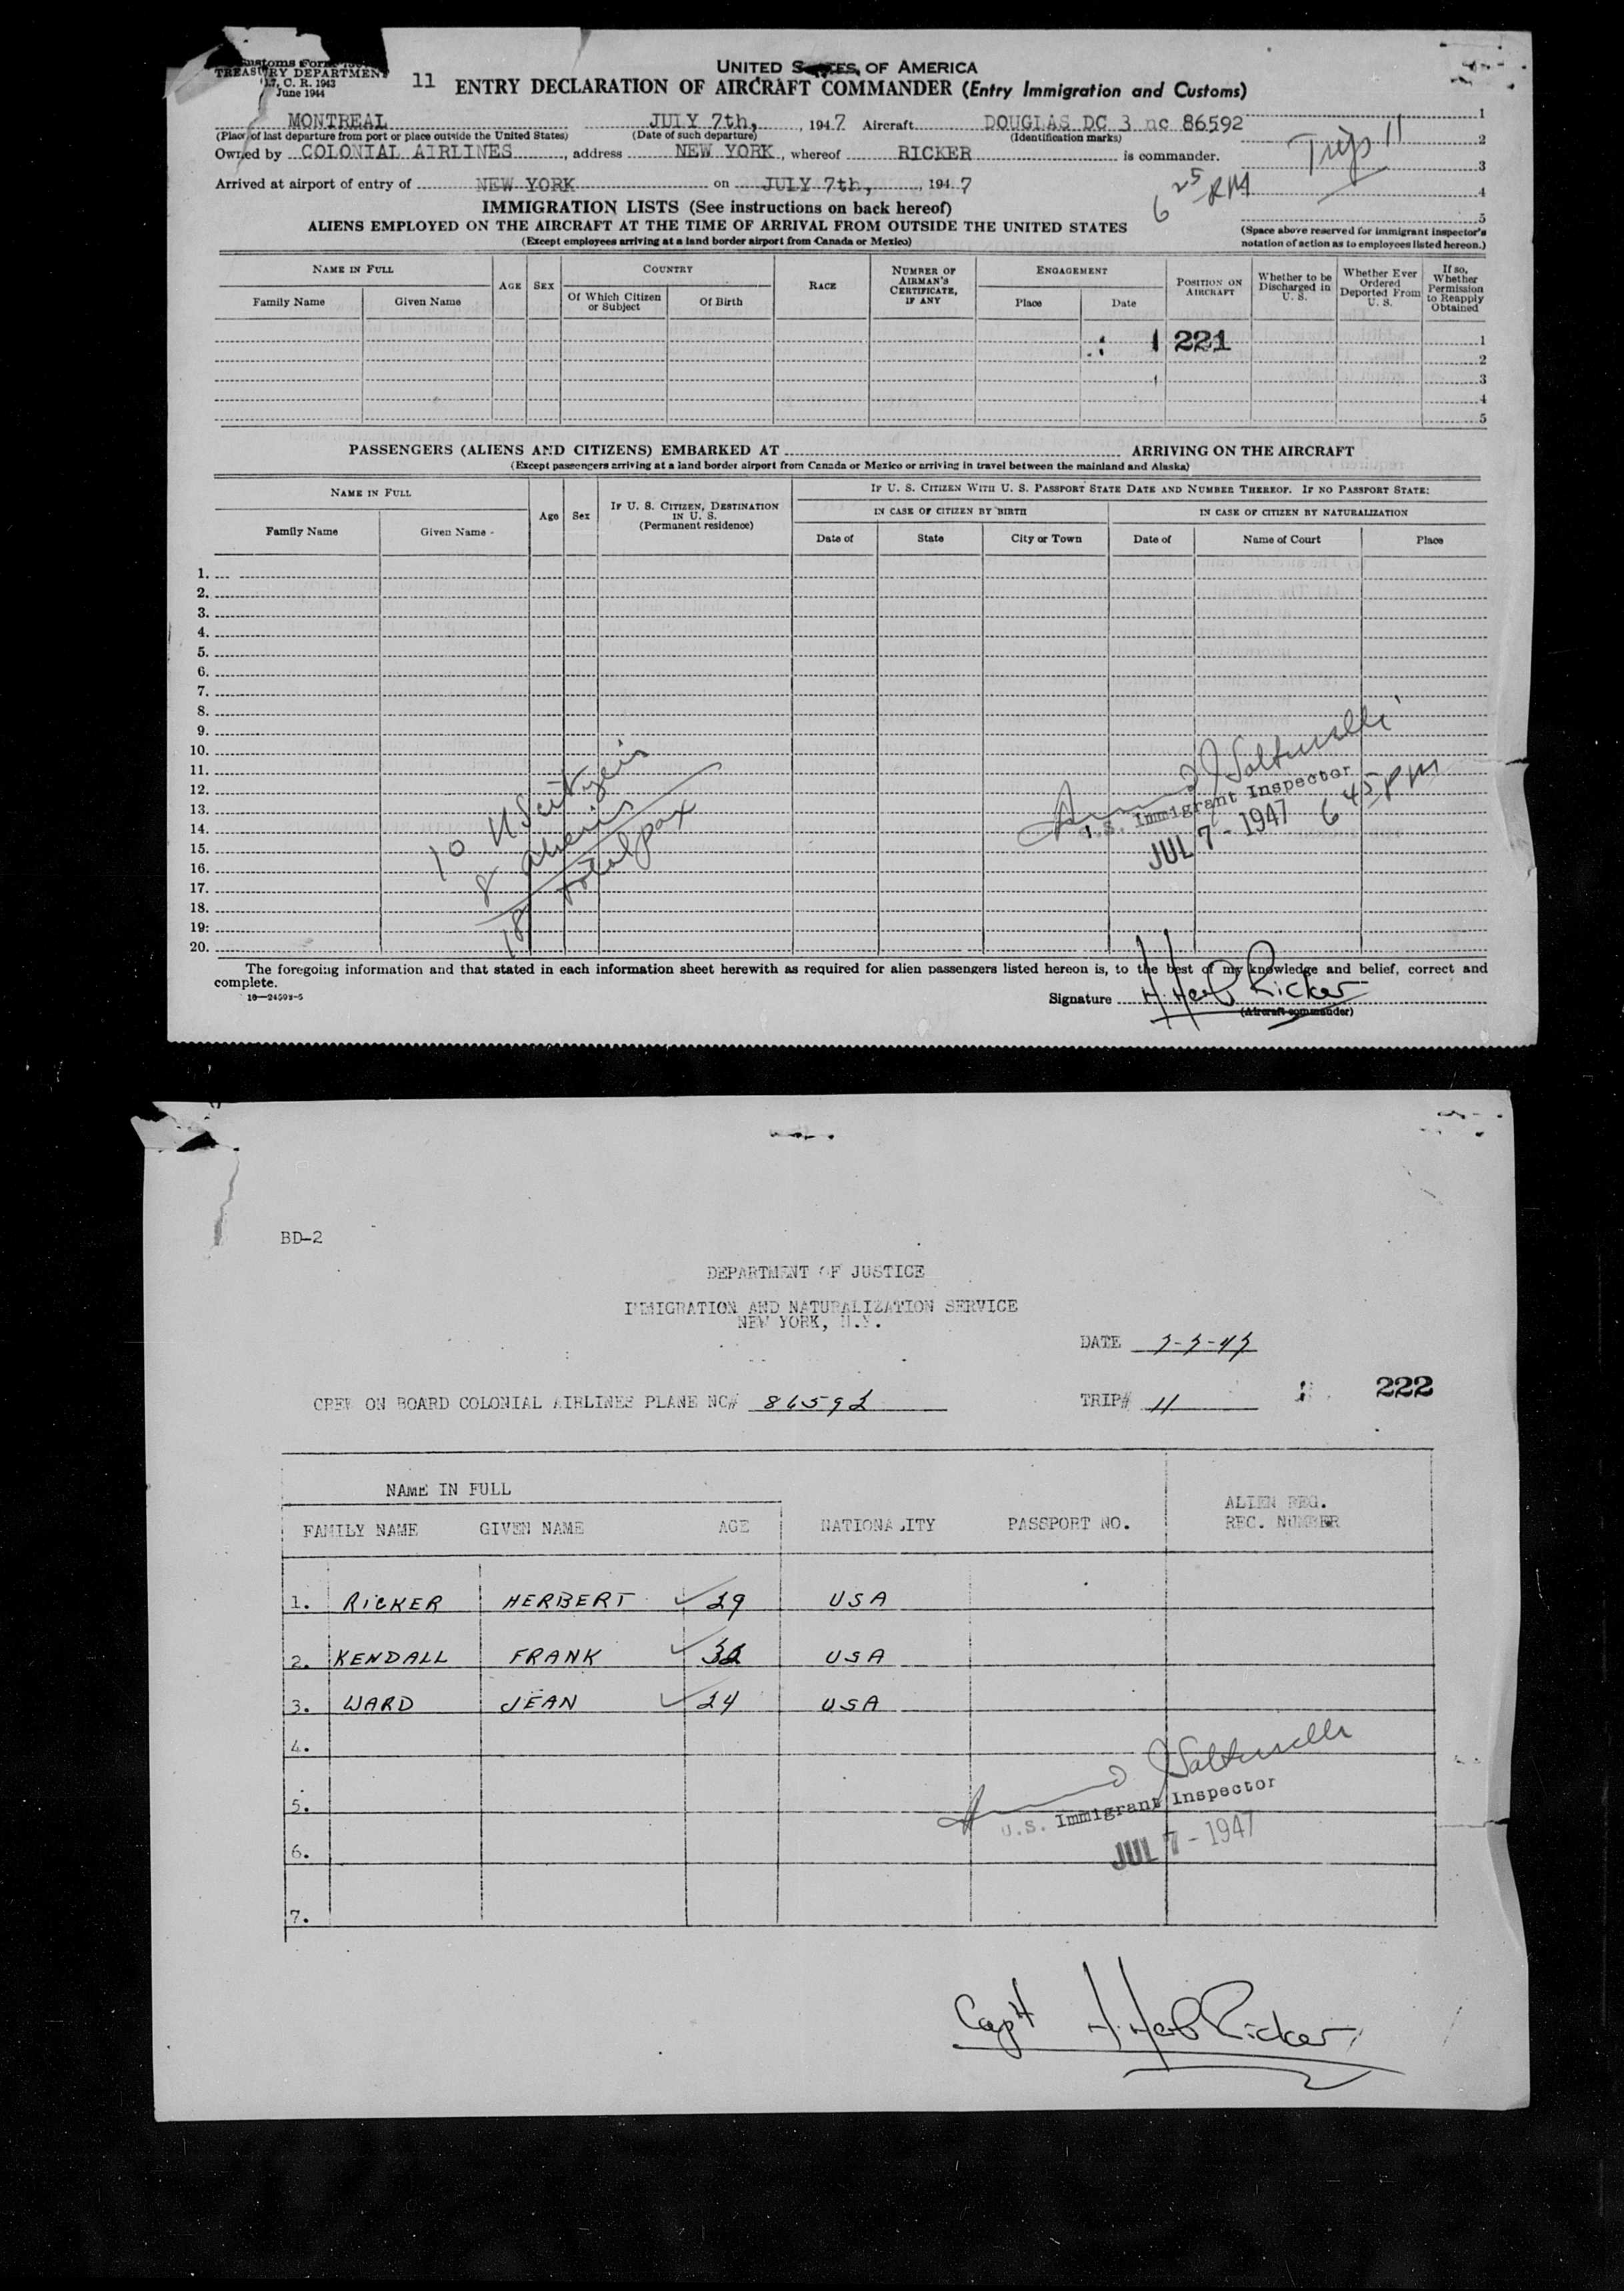 Customs Form
TREASURY DEPARTMENT
17, C. R. 1943
June 1944
11
UNITED STATES OF AMERICA
ENTRY DECLARATION OF AIRCRAFT COMMANDER (Entry Immigration and Customs)
MONTREAL JULY 7th, , 1947 Aircraft DOUGLAS DC 3 nc 86592
(Place of last departure from port or place outside the United States) (Date of such departure) (Identification marks)
Owned by COLONIAL AIRLINES , address NEW YORK , whereof RICKER is commander.
Arrived at airport of entry of NEW YORK on JULY 7th, , 1947
1
2
3
4
5
Trip 11
6 25 PM
(Space above reserved for immigrant inspector's
notation of action as to employees listed hereon.)
IMMIGRATION LISTS (See instructions on back hereof)
ALIENS EMPLOYED ON THE AIRCRAFT AT THE TIME OF ARRIVAL FROM OUTSIDE THE UNITED STATES
(Except employees arriving at a land border airport from Canada or Mexico)
NAME IN FULL
Family Name Given Name
AGE
SEX
COUNTRY
Of Which Citizen or Subject
Of Birth
RACE
NUMBER OF AIRMAN'S CERTIFICATE, IF ANY
ENGAGEMENT
Place Date
POSITION ON AIRCRAFT
Whether to be Discharged in U. S.
Whether Ever Ordered Deported From U. S.
If so, Whether Permission to Reapply Obtained
221
1
2
3
4
5
PASSENGERS (ALIENS AND CITIZENS) EMBARKED AT ARRIVING ON THE AIRCRAFT
(Except passengers arriving at a land border airport from Canada or Mexico or arriving in travel between the mainland and Alaska)
NAME IN FULL
Family Name Given Name
Age
Sex
IF U. S. CITIZEN, DESTINATION IN U. S.
(Permanent residence)
IF U. S. CITIZEN WITH U. S. PASSPORT STATE DATE AND NUMBER THEREOF. IF NO PASSPORT STATE:
IN CASE OF CITIZEN BY BIRTH IN CASE OF CITIZEN BY NATURALIZATION
Date of State City or Town Date of Name of Court Place
1.
2.
3.
4.
5.
6.
7.
8.
9.
10.
11.
12.
13.
14.
15.
16.
17.
18.
19.
20.
10 U.S. citizens
8 aliens
18 total pax
U.S. Immigrant Inspector
JUL 7 - 1947
6 45 PM
The foregoing information and that stated in each information sheet herewith as required for alien passengers listed hereon is, to the best of my knowledge and belief, correct and
complete.
16—24593-5
Signature H. Herb Ricker
(Aircraft commander)
BD-2
DEPARTMENT OF JUSTICE
IMMIGRATION AND NATURALIZATION SERVICE
NEW YORK, N.Y.
DATE 7-7-47
CREW ON BOARD COLONIAL AIRLINES PLANE NC# 86592 TRIP# 11
222
NAME IN FULL
FAMILY NAME GIVEN NAME AGE NATIONALITY PASSPORT NO. ALIEN REG. REC. NUMBER
1. RICKER HERBERT 29 USA
2. KENDALL FRANK 32 USA
3. WARD JEAN 24 USA
4.
5.
6.
7.
U.S. Immigrant Inspector
JUL 7 - 1947
Capt H. Herb Ricker